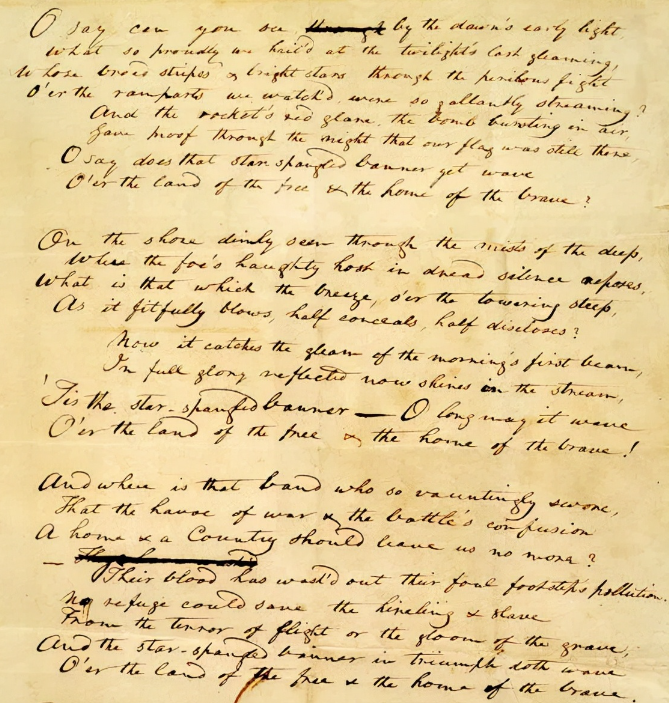 O say can you see through by the dawn's early light,
What so proudly we hail'd at the twilight's last gleaming,
Whose broad stripes & bright stars through the perilous fight
O'er the ramparts we watch'd, were so gallantly streaming?
And the rocket's red glare, the bomb bursting in air,
Gave proof through the night that our flag was still there,
O say does that star-spangled banner yet wave
O'er the land of the free & the home of the brave?
On the shore dimly seen through the mists of the deep,
Where the foe's haughty host in dread silence reposes,
What is that which the breeze, o'er the towering steep,
As it fitfully blows, half conceals, half discloses?
Now it catches the gleam of the morning's first beam,
In full glory reflected now shines in the stream,
'Tis the star-spangled banner — O long may it wave
O'er the land of the free & the home of the brave!
And where is that band who so vauntingly swore,
That the havoc of war & the battle's confusion
A home & a Country should leave us no more?
—
Their blood has wash'd out their foul footstep's pollution.
No refuge could save the hireling & slave
From the terror of flight or the gloom of the grave,
And the star-spangled banner in triumph doth wave
O'er the land of the free & the home of the brave.